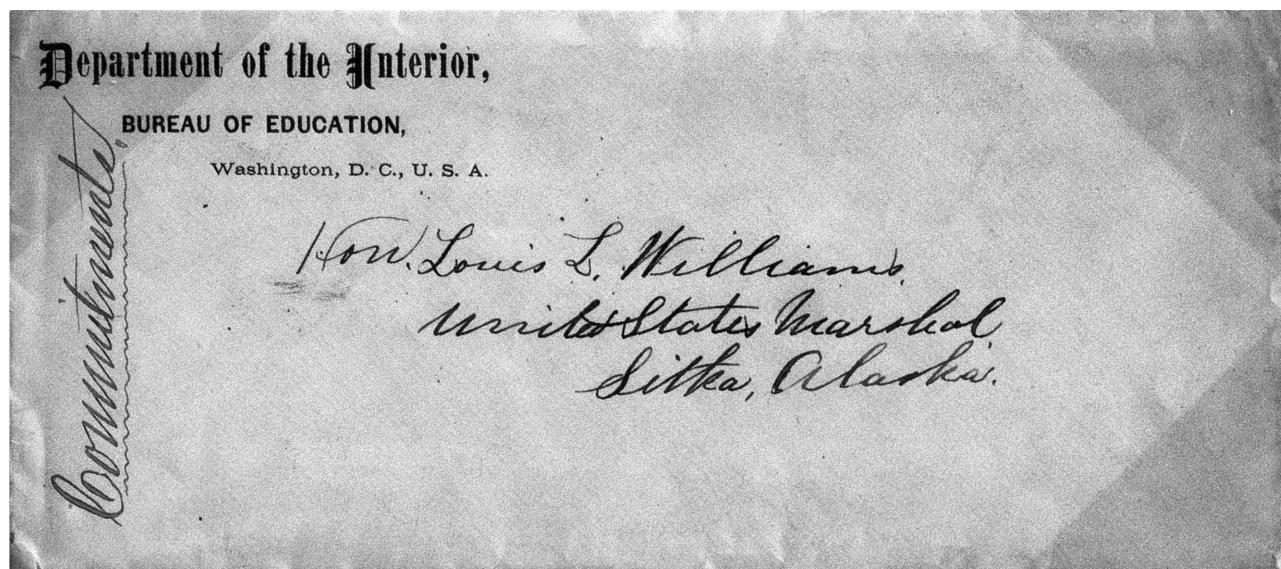 Department of the Interior,
BUREAU OF EDUCATION,
Washington, D. C., U. S. A.
Commitments.
Hon. Louis L. Williams.
United States Marshal
Sitka, Alaska.